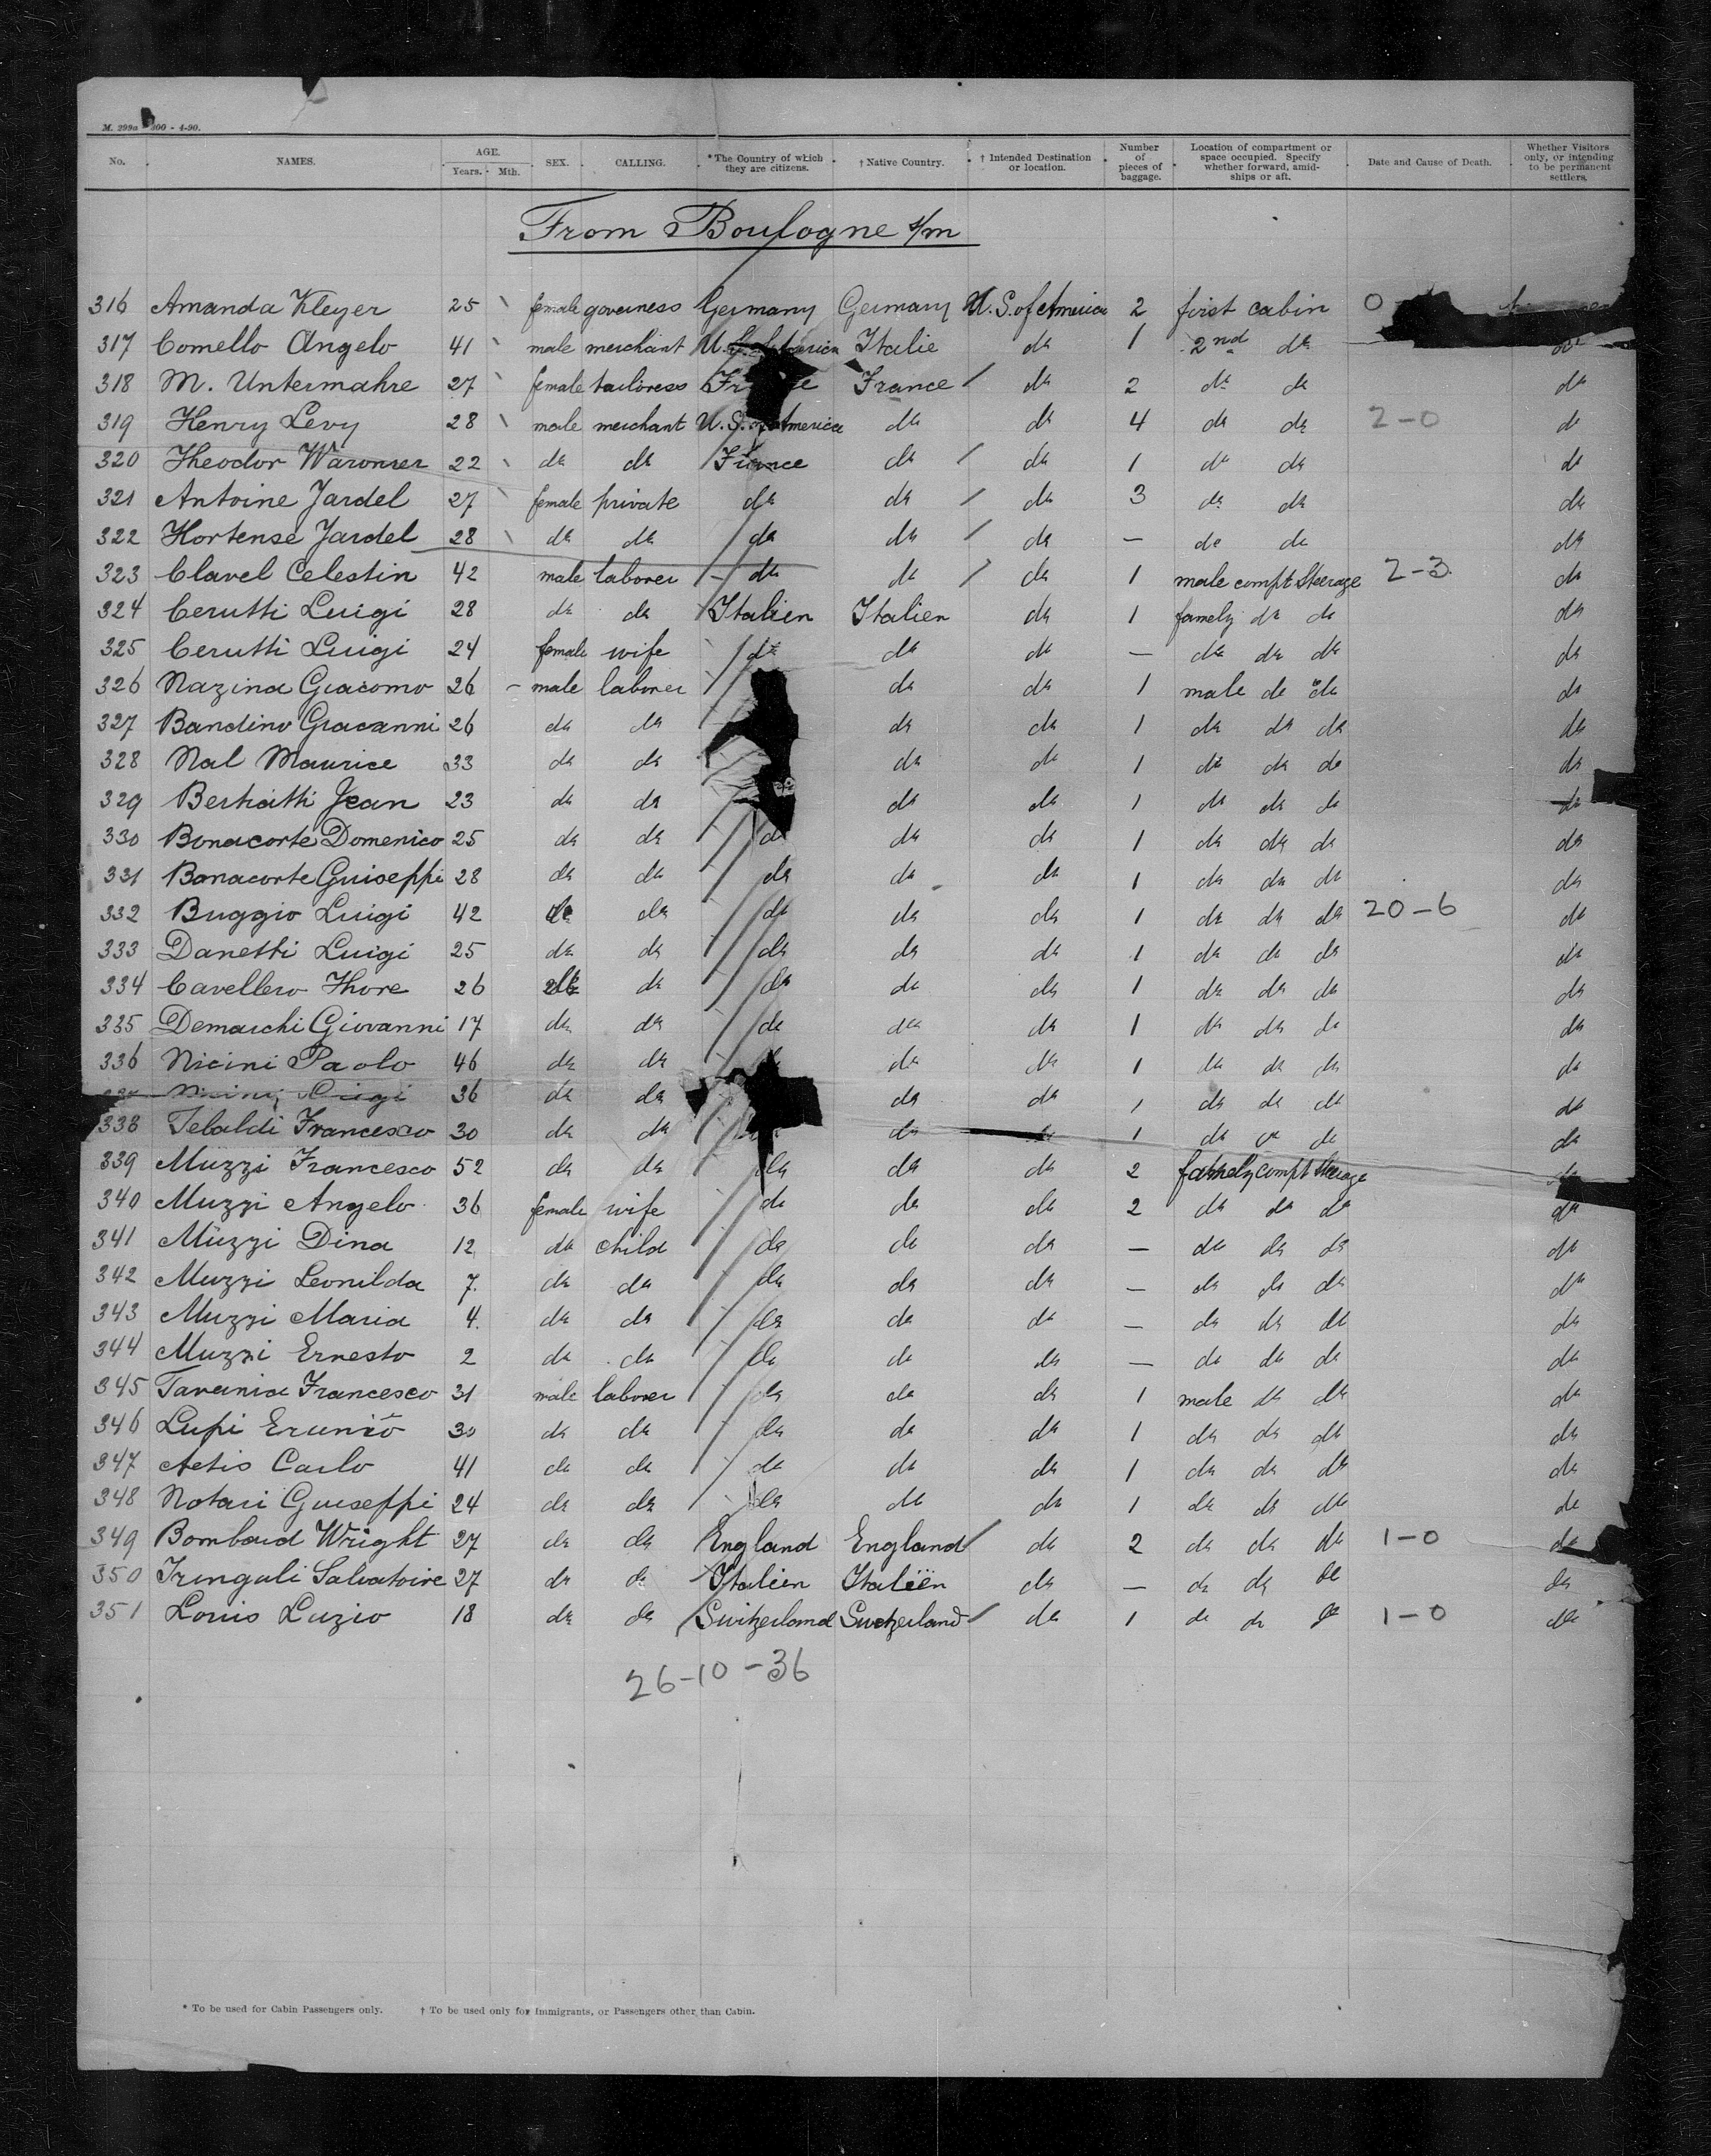 M. 299a 300 - 4-90.
No. NAMES. AGE. Years. Mth. SEX. CALLING. *The Country of which they are citizens. † Native Country. † Intended Destination or location. Number of pieces of baggage. Location of compartment or space occupied. Specify whether forward, amidships or aft. Date and Cause of Death. Whether Visitors only, or intending to be permanent settlers.
From Boulogne s/m
316 Amanda Kleyer 25 female governess Germany Germany U.S. of America 2 first cabin 0
317 Comello Angelo 41 male merchant U.S. of America Italie do 1 2nd do do
318 M. Untermahre 27 female tailoress France do 2 do do do
319 Henry Levy 28 male merchant U.S. of America do do 4 do do 2-0 do
320 Theodor Waronser 22 do do France do do 1 do do do
321 Antoine Jardel 27 female private do do do 3 do do do
322 Hortense Jardel 28 do do do do do — do do do
323 Clavel Celestin 42 male laborer - do do do 1 male compt Steerage 2-3 do
324 Cerutti Luigi 28 do do Italien Italien do 1 famely do do do
325 Cerutti Luigi 24 female wife do do do — do do do do
326 Nazina Giacomo 26 - male laborer do do 1 male do do do
327 Bandino Giacanni 26 do do do do 1 do do do do
328 Nal Maurice 33 do do do do 1 do do do do
329 Bertratti Jean 23 do do do do 1 do do do do
330 Bonacorte Domenico 25 do do do do do 1 do do do do
331 Bonacorte Guiseppi 28 do do do do do 1 do do do do
332 Buggio Luigi 42 do do do do do 1 do do do 20-6 do
333 Danetti Luigi 25 do do do do do 1 do do do do
334 Cavellero Thore 26 do do do do do 1 do do do do
335 Demarchi Giovanni 17 do do do do do 1 do do do do
336 Nicini Paolo 46 do do do do 1 do do do do
Nicini Luigi 36 do do do do 1 do do do do
338 Tebaldi Francesco 30 do do do do 1 do do do do
339 Muzzi Francesco 52 do do do do do 2 famely compt Steerage do
340 Muzzi Angelo 36 female wife do do do 2 do do do do
341 Muzzi Dina 12 do child do do do — do do do do
342 Muzzi Leonilda 7. do do do do do — do do do do
343 Muzzi Maria 4. do do do do do — do do do do
344 Muzzi Ernesto 2 do do do do do — do do do do
345 Tavania Francesco 31 male laborer do do do 1 male do do do
346 Lupi Erunio 30 do do do do do 1 do do do do
347 Aetis Carlo 41 do do do do do 1 do do do do
348 Notari Guiseppi 24 do do do do do 1 do do do do
349 Bombard Wright 27 do do England England do 2 do do do 1-0 do
350 Tringali Salvatoire 27 do do Italien Italien do — do do do do
351 Louis Luzio 18 do do Switzerland Switzerland do 1 do do do 1-0 do
26-10-36
* To be used for Cabin Passengers only. † To be used only for Immigrants, or Passengers other than Cabin.